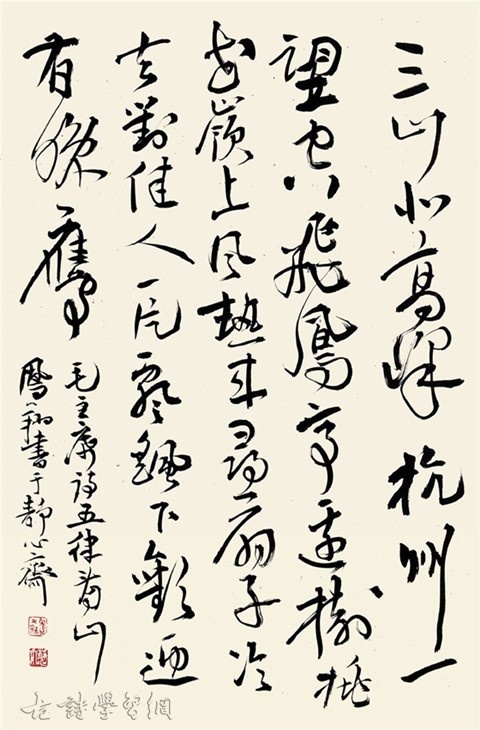 三山北高峰杭州一
望空飛鳳亭邊樹桃
花嶺上風熱來尋扇子冷
去對佳人一片飄飄下歡迎
有晚鷹
毛主席詩五律看山
鳳翔書于靜心齋
學習網